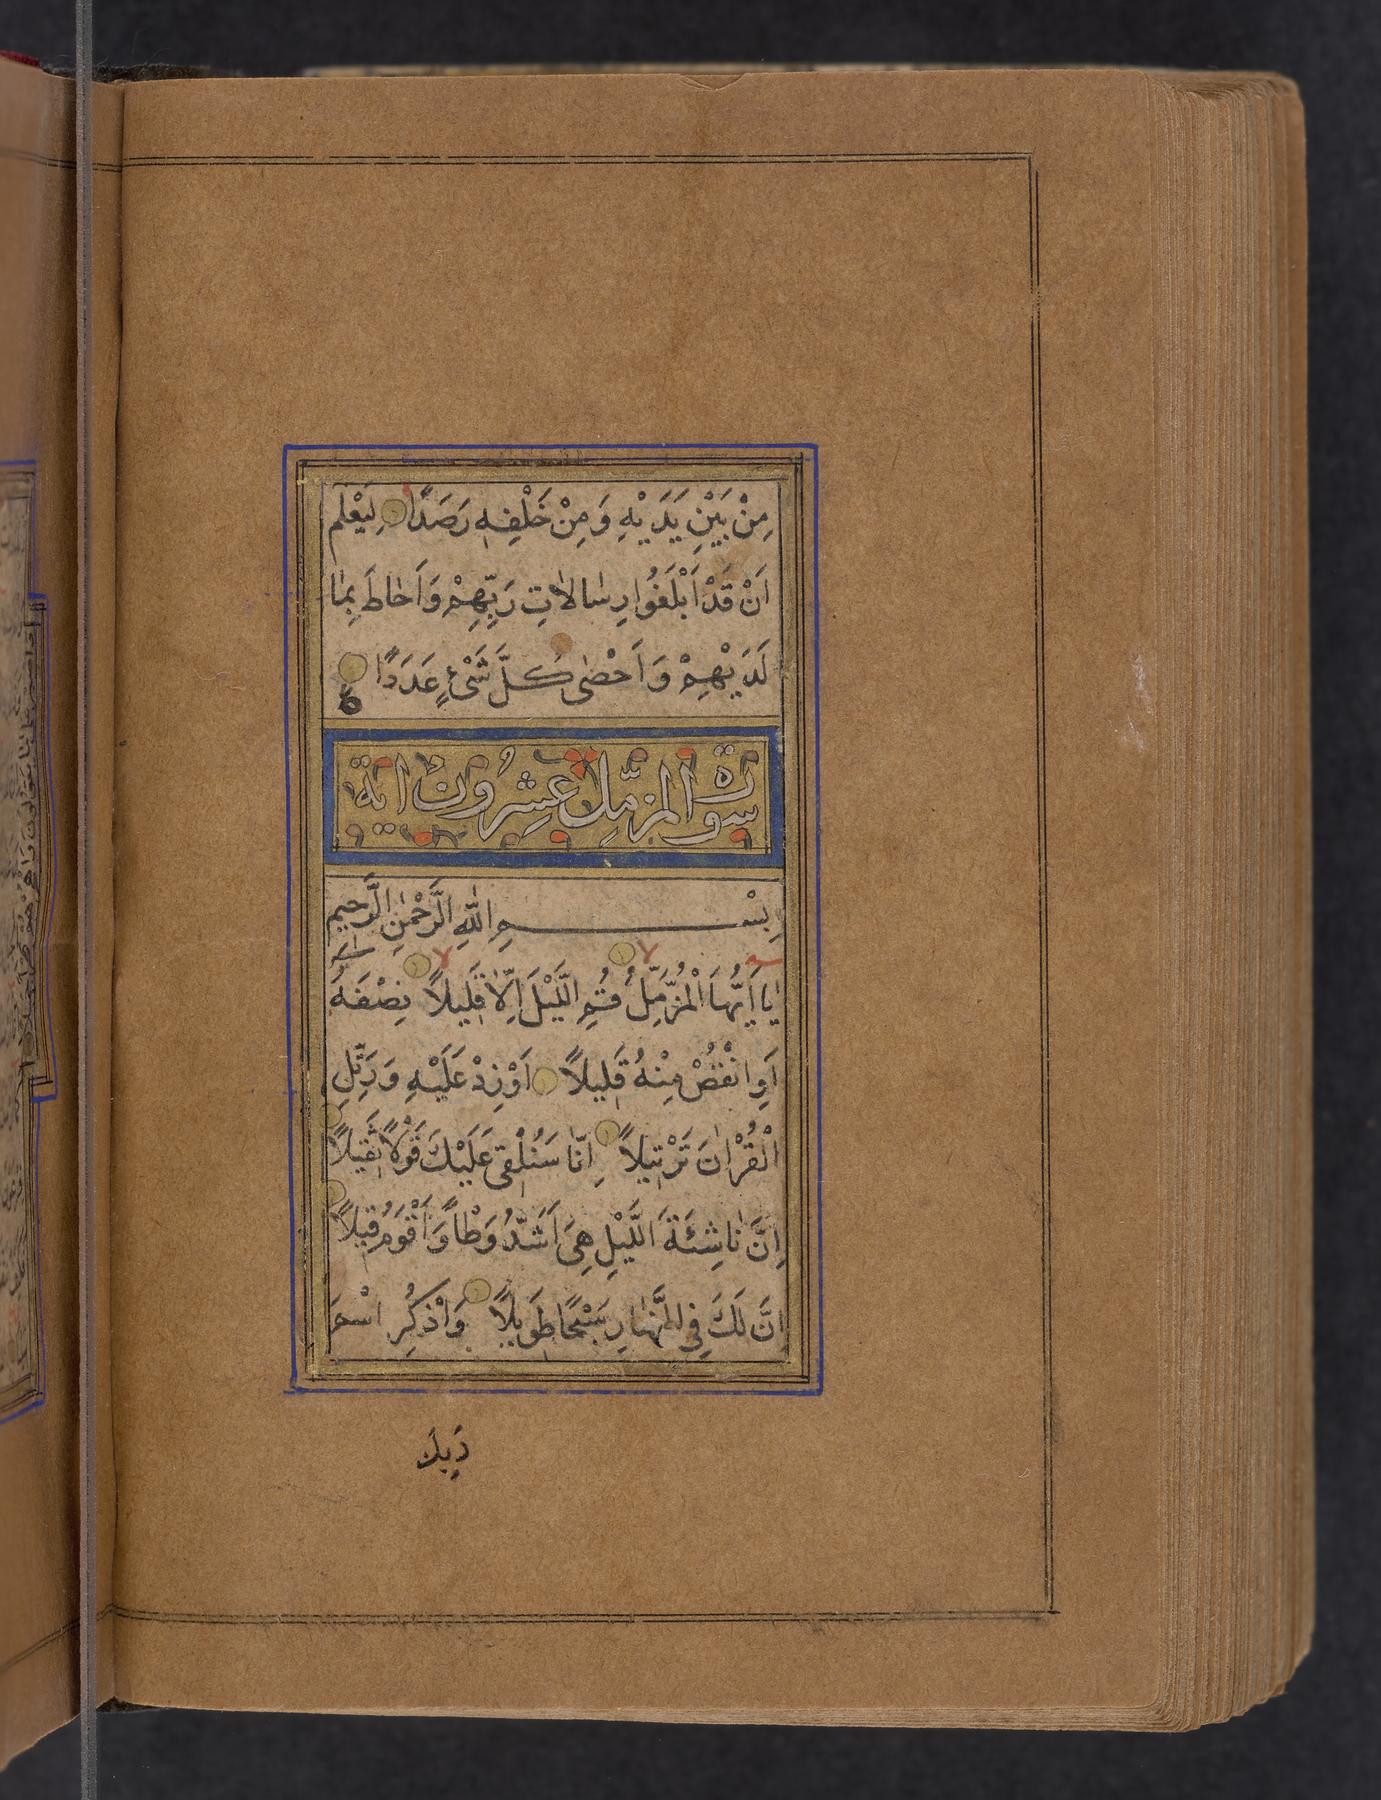 مِنْ بَيْنِ يَدَيْهِ وَمِنْ خَلْفِهِ رَصَدًا لِيَعْلَمَ
اَنْ قَدْ اَبْلَغُوا رِسَالَاتِ رَبِّهِمْ وَاَحَاطَ بِمَا
لَدَيْهِمْ وَاَحْصٰى كُلَّ شَىْءٍ عَدَدًا
ع
سورة المزمّل عِشرُونَ اية
بِسْمِ اللّٰهِ الرَّحْمٰنِ الرَّحِيمِ
يَا اَيُّهَا الْمُزَّمِّلُ قُمِ الَّيْلَ اِلَّا قَلِيلًا نِصْفَهُ
اَوِ انْقُصْ مِنْهُ قَلِيلًا اَوْ زِدْ عَلَيْهِ وَرَتِّلِ
الْقُرْاٰنَ تَرْتِيلًا اِنَّا سَنُلْقِى عَلَيْكَ قَوْلًا ثَقِيلًا
اِنَّ نَاشِئَةَ الَّيْلِ هِىَ اَشَدُّ وَطْاً وَاَقْوَمُ قِيلًا
اِنَّ لَكَ فِى النَّهَارِ سَبْحًا طَوِيلًا وَاذْكُرِ اسْمَ
رَبِّكَ